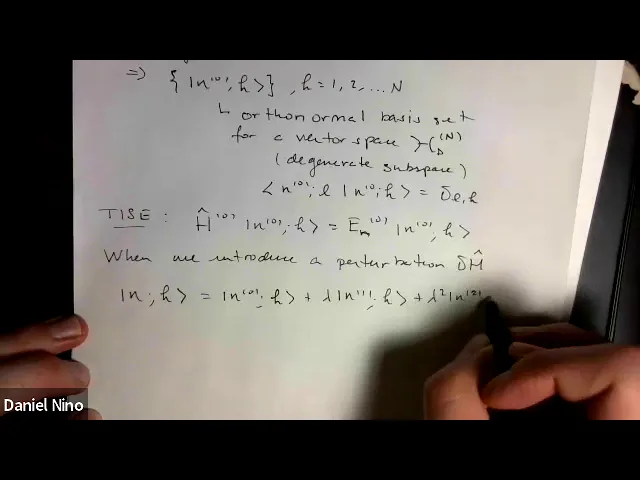 ⇒ { |n⁽⁰⁾; k⟩ } , k = 1, 2, ... N
↳ orthonormal basis set
for a vector space ℋ_D⁽ᴺ⁾
(degenerate subspace)
⟨n⁽⁰⁾; ℓ | n⁽⁰⁾; k⟩ = δℓ,k
TISE : Ĥ⁽⁰⁾ |n⁽⁰⁾; k⟩ = Eₙ⁽⁰⁾ |n⁽⁰⁾; k⟩
When we introduce a perturbation δĤ
|n; k⟩ = |n⁽⁰⁾; k⟩ + λ|n⁽¹⁾; k⟩ + λ²|n⁽²⁾
Daniel Nino